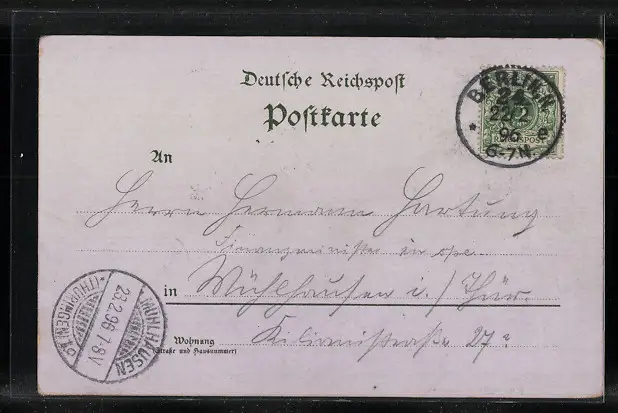 Deutsche Reichspost
Postkarte
BERLIN.N.
24
22 2
96
6-7N.
An
Herrn Hermann Hartung
in Mühlhausen i./Thür.
Kilianistraße 27
Wohnung
(Straße und Hausnummer)
MÜHLHAUSEN
23.2.96 7-8V
(THÜRINGEN)